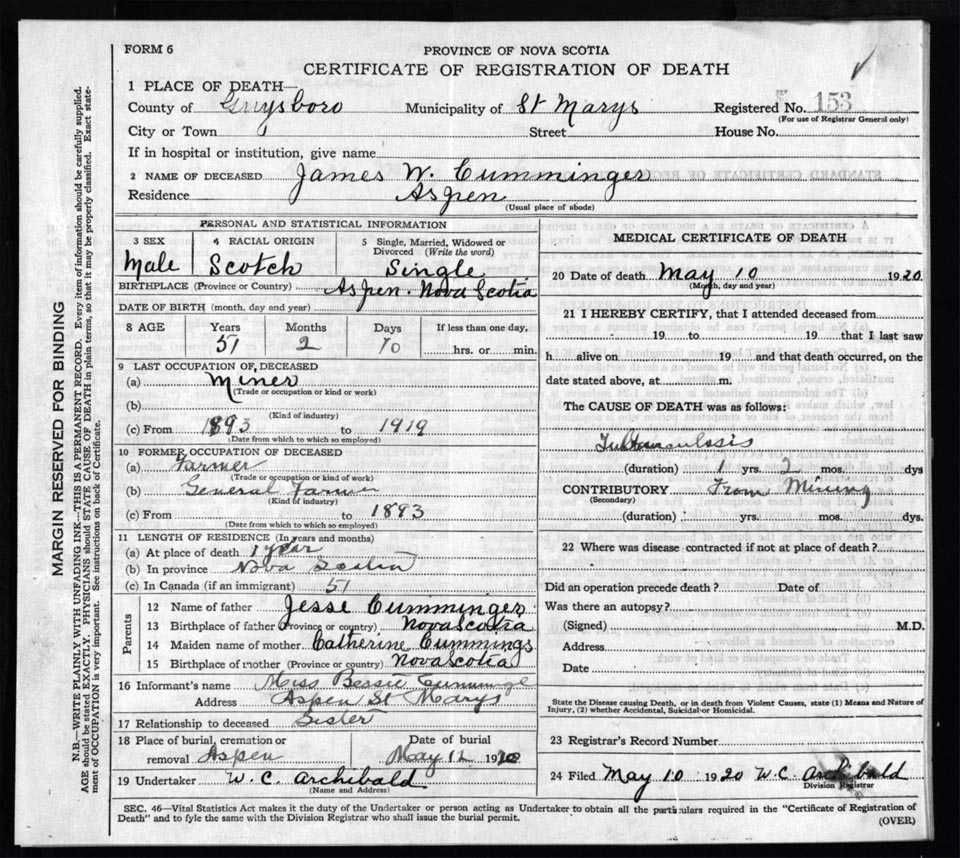 FORM 6
PROVINCE OF NOVA SCOTIA
CERTIFICATE OF REGISTRATION OF DEATH
1 PLACE OF DEATH—
County of Guysboro Municipality of St Marys Registered No. 153
(For use of Registrar General only)
City or Town Street House No.
If in hospital or institution, give name
2 NAME OF DECEASED James W. Cumminger
Residence Aspen
(Usual place of abode)
PERSONAL AND STATISTICAL INFORMATION
3 SEX Male
4 RACIAL ORIGIN Scotch
5 Single, Married, Widowed or Divorced (Write the word) Single
BIRTHPLACE (Province or Country) Aspen. Nova Scotia
DATE OF BIRTH (month, day and year)
8 AGE Years Months Days If less than one day,
51 2 10 hrs. or min.
9 LAST OCCUPATION OF DECEASED
(a) Miner
(Trade or occupation or kind or work)
(b)
(Kind of industry)
(c) From 1893 to 1919
(Date from which to which so employed)
10 FORMER OCCUPATION OF DECEASED
(a) Farmer
(Trade or occupation or kind of work)
(b) General Farmer
(Kind of industry)
(c) From to 1893
(Date from which to which so employed)
11 LENGTH OF RESIDENCE (In years and months)
(a) At place of death 1 year
(b) In province Nova Scotia
(c) In Canada (if an immigrant) 51
Parents
12 Name of father Jesse Cumminger
13 Birthplace of father (Province or country) Nova Scotia
14 Maiden name of mother Catherine Cummings
15 Birthplace of mother (Province or country) Nova Scotia
16 Informant's name Miss Bessie
Address Aspen St Marys
17 Relationship to deceased Sister
18 Place of burial, cremation or Date of burial
removal Aspen May 12 1920
19 Undertaker W. C. Archibald
(Name and Address)
MEDICAL CERTIFICATE OF DEATH
20 Date of death May 10 1920
(Month, day and year)
21 I HEREBY CERTIFY, that I attended deceased from
19 to 19 that I last saw
h alive on 19 and that death occurred, on the
date stated above, at m.
The CAUSE OF DEATH was as follows:
Tuberculosis
(duration) 1 yrs. 2 mos. dys
CONTRIBUTORY From Mining
(Secondary)
(duration) yrs. mos. dys.
22 Where was disease contracted if not at place of death?
Did an operation precede death? Date of
Was there an autopsy?
(Signed) M.D.
Address
Date
State the Disease causing Death, or in death from Violent Causes, state (1) Means and Nature of
Injury, (2) whether Accidental, Suicidal or Homicidal.
23 Registrar's Record Number
24 Filed May 10 1920 W. C. Archibald
Division Registrar
SEC. 46—Vital Statistics Act makes it the duty of the Undertaker or person acting as Undertaker to obtain all the particulars required in the "Certificate of Registration of
Death" and to fyle the same with the Division Registrar who shall issue the burial permit.
(OVER)
MARGIN RESERVED FOR BINDING
N.B.—WRITE PLAINLY WITH UNFADING INK—THIS IS A PERMANENT RECORD. Every item of information should be carefully supplied.
AGE should be stated EXACTLY. PHYSICIANS should STATE CAUSE OF DEATH in plain terms, so that it may be properly classified. Exact state-
ment of OCCUPATION is very important. See instructions on back of Certificate.